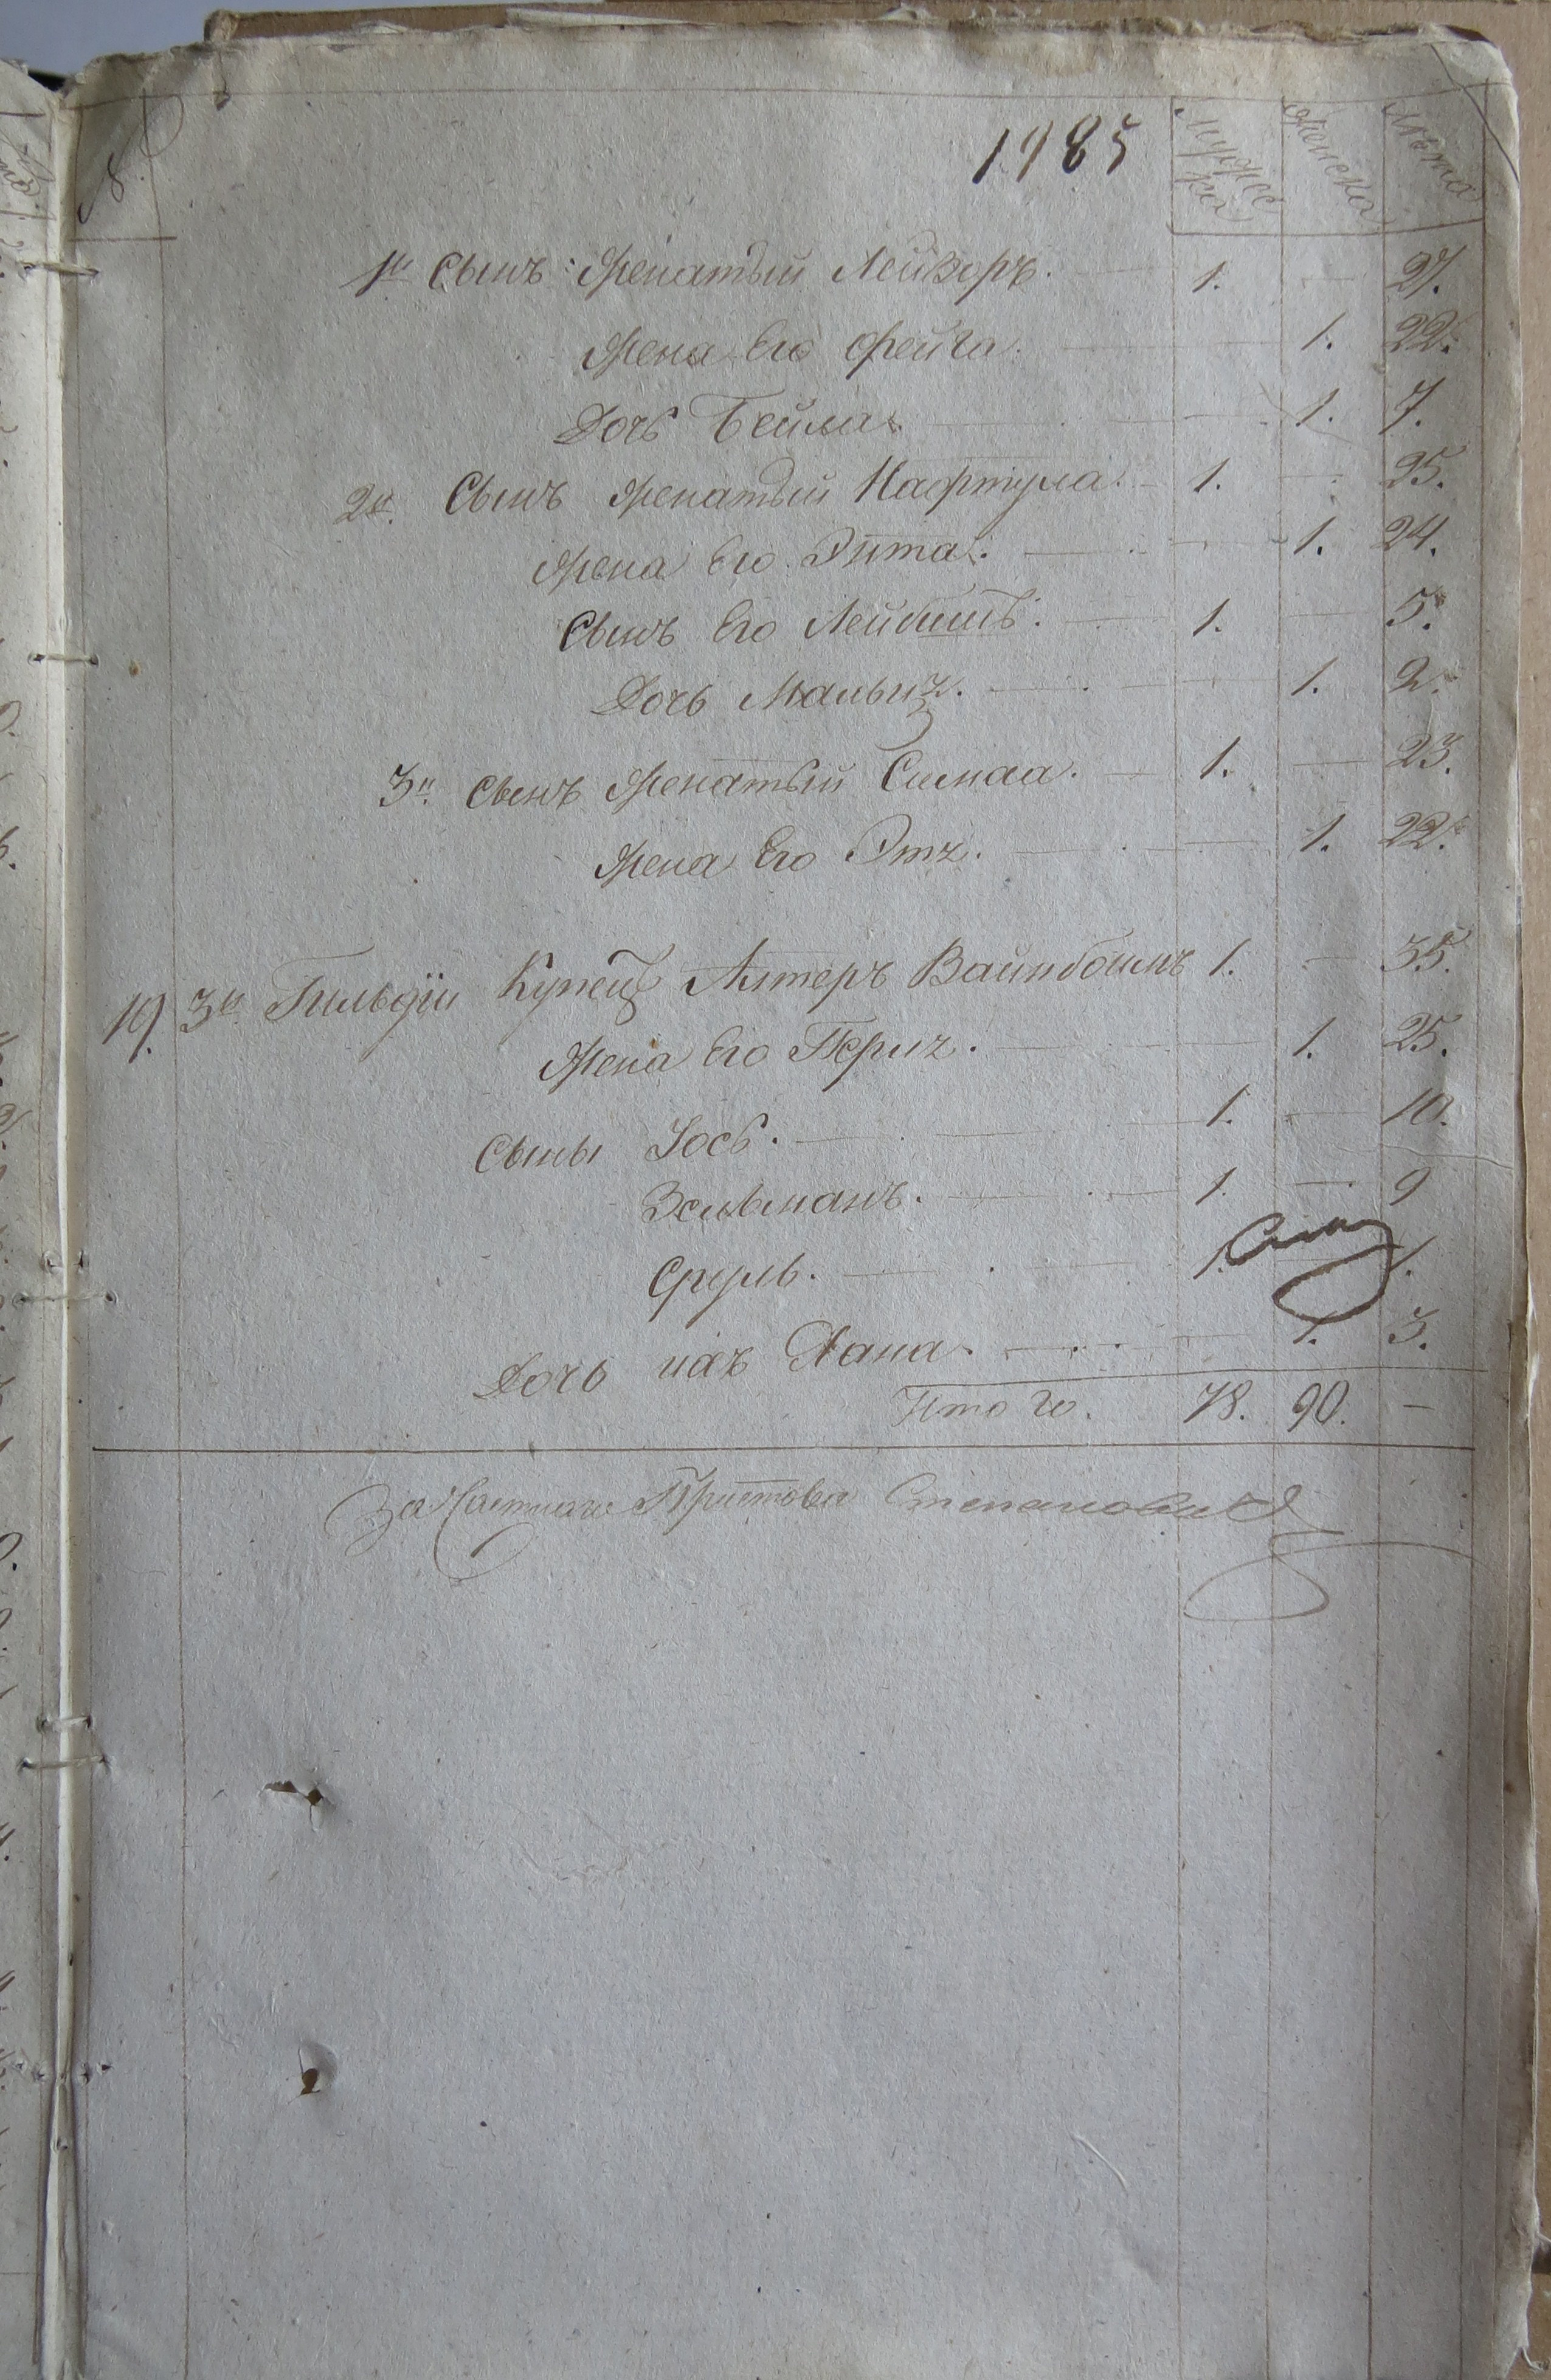 1985
Мужес
ка
Женска
Лѣта
1й Сынъ: Женатый Лейзоръ. 1. — 27.
Жена Его Фейга. 1. 22.
Дочь Бейла. 1. 7.
2й. Сынъ Женатый Нафтула. 1. — 25.
Жена Его Энта. 1. 24.
Сынъ Его Лейбишъ. 1. — 5.
Дочь 1. 2.
3й. Сынъ Женатый Симха. 1. — 23.
Жена Его 1. 22.
19. 3й Гильдіи Купецъ Алтеръ Вайнбоимъ 1. — 35.
Жена Его Перля. 1. 25.
Сыны Іось. 1. — 10.
Зельманъ. 1. — 9
Сруль. 1. — 1.
Дочь ихъ Хана. 1. 3.
Итого. 78. 90. —
За Частнаго Пристава Степановъ